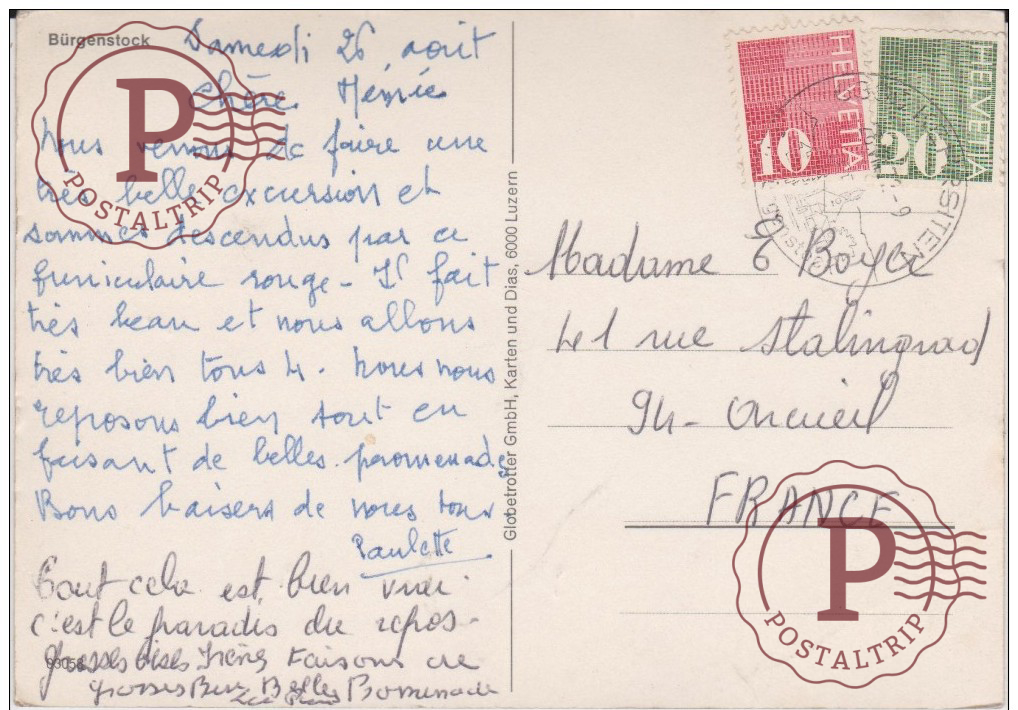 Bürgenstock
Samedi 26 août
Chère Mémé
Nous venons de faire une
très belle excursion et
sommes descendus par ce
funiculaire rouge - Il fait
très beau et nous allons
très bien tous 4. Nous nous
reposons bien tout en
faisant de belles promenades
Bons baisers de nous tous
Paulette
Tout cela est bien vrai
c'est le paradis du repos -
grosses bises Irène Faisons de
grosses Bises Belles Promenade
93058
Globetrotter GmbH, Karten und Dias, 6000 Luzern
HELVETIA 10
HELVETIA 20
Madame Boyer
41 rue Stalingrad
94 - Arcueil
FRANCE
P
POSTALTRIP
P
POSTALTRIP